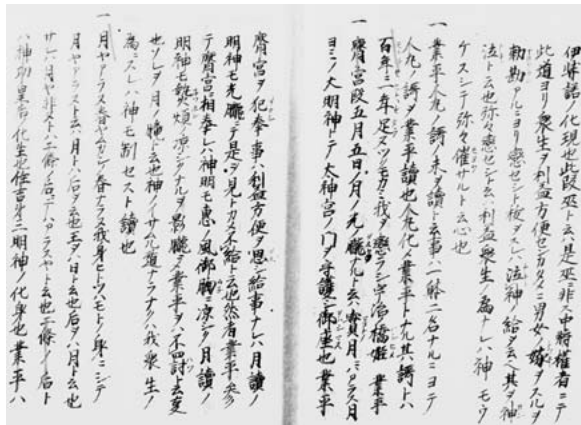 伊弉諾ノ化現也此段巫トハ是巫ニ非ス中将権者ニテ
此道ヨリ衆生ヲ利益方便セシカタメニ男女ノ嫁ヲスルヲ
勅勘アルニヨリ慰セシト祓ヲスレハ法神ノ給ヲ云ヘ其ヲ神
法ト云也弥々慰セシト云ハ利益衆生ノ為トレハ神モウ
ケスシテ弥々催サルト云心也
一 業平人丸ノ謌ノ末ヲ讀ト云事ハ一躰二名ナルニヨテ
人丸ノ謌ヲ業平讀也人丸化ノ業平トナル其謌トハ
百年ニ一年足ヌツクモカミ我ヲ戀ラシ宇治ノ橋姫 業平
一 齋宮段五月五日ノ月ノ光ノ朧ナルト云ハ實月ニアラス月
ヨミノ大明神トテ太神宮ノ門ヲ守護シ御座也業平
齋宮ヲ犯奉事ハ利益方便ヲ思シ給事ナレハ月讀ノ
明神モ光朧ニテ是ヲ見トカメ不給ト云也然者業平參
テ齋宮相奉レハ神明モ惠ノ風御胸ニ凉シク月讀ノ
明神モ熱煩ノ凉シクナルヲ影朧ヲ業平ヲハ不罸ト云変
也ソレヲ月ノ朧ト云也神ノイサムル道ナラナクハ我衆生ノ
為ニスレハ神モ制セスト讀也
一 月ヤアラヌ春ヤムカシノ春ナラヌ我身ヒトツハモトノ身ニシテ
月ヤアラストハ二月トハ后ヲ云也王ヲハ日ト云也后ヲハ月ト云也
サレハ月ヤ非ストハ二條ノ后ニテハアラスヤト云也二條ノ后ト
ハ神功皇后ノ化生也住吉ノ二明神ノ化身也業平ハ